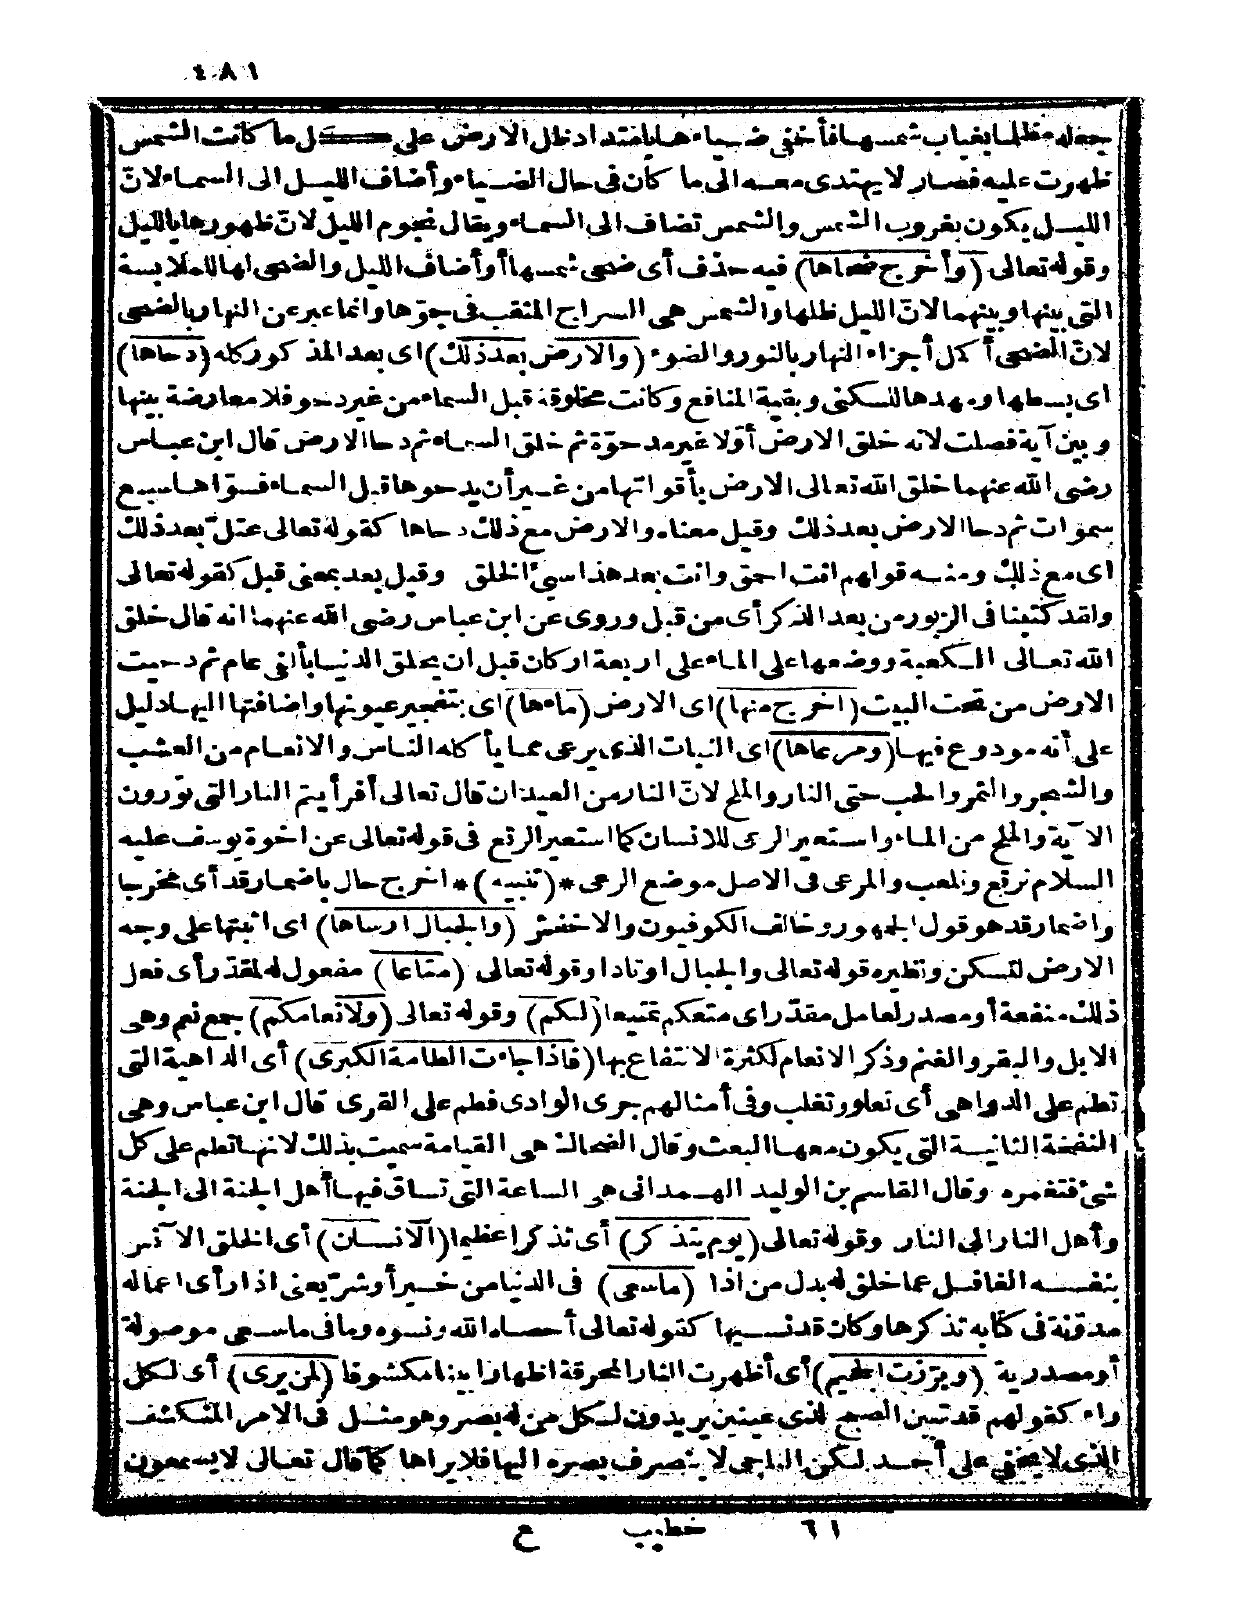 ٤٨١
جعله مظلما بغياب شمسها فأخفى ضياءها بامتداد ظل الارض على كل ما كانت الشمس
ظهرت عليه فصار لا يهتدى معه الى ما كان فى حال الضياء وأضاف الليل الى السماء لانّ
الليل يكون بغروب الشمس والشمس تضاف الى السماء ويقال نجوم الليل لانّ ظهورها بالليل
وقوله تعالى (وأخرج ضحاها) فيه حذف أى ضحى شمسها أو أضاف الليل والضحى لها للملابسة
التى بينها وبينهما لانّ الليل ظلها والشمس هى السراج المثقب فى جوّها وانما عبر عن النهار بالضحى
لانّ الضحى أكمل أجزاء النهار بالنور والضوء (والارض بعد ذلك) اى بعد المذكور كله (دحاها)
اى بسطها ومهدها للسكنى وبقية المنافع وكانت مخلوقة قبل السماء من غير دحو فلا معارضة بينها
وبين آية فصلت لانه خلق الارض أوّلا غير مدحوّة ثم خلق السماء ثم دحا الارض قال ابن عباس
رضى الله عنهما خلق الله تعالى الارض بأقواتها من غير أن يدحوها قبل السماء فسوّاها سبع
سموات ثم دحا الارض بعد ذلك وقيل معناه والارض مع ذلك دحاها كقوله تعالى عتلّ بعد ذلك
اى مع ذلك ومنه قولهم انت احمق وانت بعد هذا سيئ الخلق وقيل بعد بمعنى قبل كقوله تعالى
ولقد كتبنا فى الزبور من بعد الذكر أى من قبل وروى عن ابن عباس رضى الله عنهما انه قال خلق
الله تعالى الكعبة ووضعها على الماء على اربعة اركان قبل ان يخلق الدنيا بألفى عام ثم دحيت
الارض من تحت البيت (اخرج منها) اى الارض (ماءها) اى بتفجير عيونها واضافتها اليها دليل
على أنه مودوع فيها (ومرعاها) اى النبات الذى يرعى مما يأكله الناس والانعام من العشب
والشجر والثمر والحب حتى النار والملح لانّ النار من العيدان قال تعالى أفرأيتم النار التى تورون
الآية والملح من الماء واستعير الرعى للانسان كما استعير الرتع فى قوله تعالى عن اخوة يوسف عليه
السلام نرتع ونلعب والمرعى فى الاصل موضع الرعى *(تنبيه)* اخرج حال باضمار قد أى مخرجا
واضمار قد هو قول الجمهور وخالف الكوفيون والاخفش (والجبال ارساها) اى اثبتها على وجه
الارض لتسكن ونظيره قوله تعالى والجبال اوتادا وقوله تعالى (متاعا) مفعول له لمقدّر أى فعل
ذلك منفعة أو مصدر لعامل مقدّر اى متعكم تمتيعا (لكم) وقوله تعالى (ولانعامكم) جمع نعم وهى
الابل والبقر والغنم وذكر الانعام لكثرة الانتفاع بها (فاذا جاءت الطامة الكبرى) أى الداهية التى
تطم على الدواهى أى تعلو وتغلب وفى أمثالهم جرى الوادى فطم على القرى قال ابن عباس وهى
النفخة الثانية التى يكون معها البعث وقال الضحاك هى القيامة سميت بذلك لانها تطم على كل
شئ فتغمره وقال القاسم بن الوليد الهمدانى هى الساعة التى تساق فيها أهل الجنة الى الجنة
وأهل النار الى النار وقوله تعالى (يوم يتذكر) أى تذكرا عظيما (الانسان) أى الخلق الآنس
بنفسه الغافل عما خلق له بدل من اذا (ما سعى) فى الدنيا من خير أو شرّ يعنى اذا رأى اعماله
مدوّنة فى كتابه تذكرها وكان قد نسيها كقوله تعالى أحصاه الله ونسوه وما فى ما سعى موصولة
أو مصدرية (وبرّزت الجحيم) أى أظهرت النار المحرقة اظهارا بينا مكشوفا (لمن يرى) أى لكل
راء كقولهم قد تبين الصبح لذى عينين يريدون لكل من له بصر وهو مثل فى الامر المنكشف
الذى لا يخفى على أحد لكن الناجى لا ينصرف بصره اليها فلا يراها كما قال تعالى لا يسمعون
٦١ خطيب ع